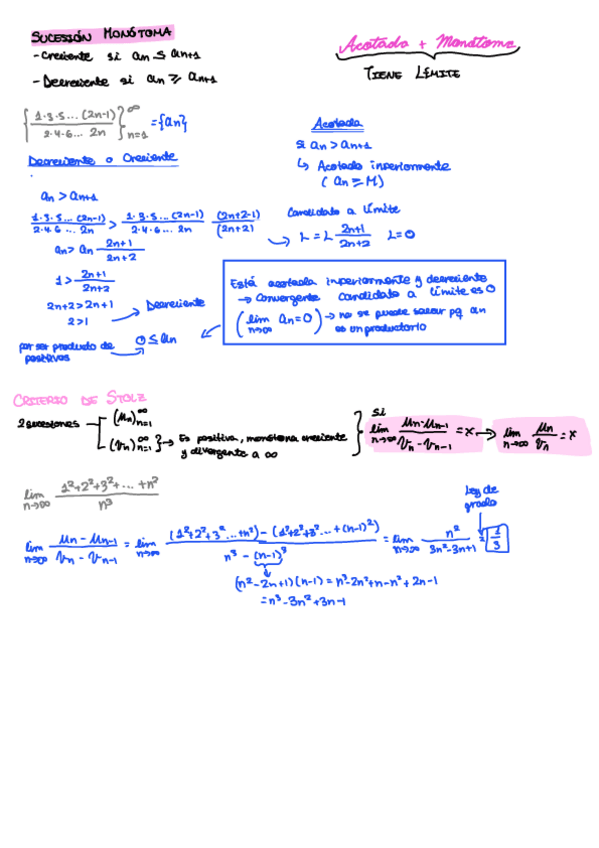 SUCESIÓN MONÓTOMA
- Creciente si an ≤ an+1
- Decreciente si an ≥ an+1
Acotada + Monótoma
TIENE LÍMITE
{ 1·3·5...(2n-1) / 2·4·6... 2n }∞ n=1 = {an}
Decreciente o Creciente
an > an+1
1·3·5...(2n-1) / 2·4·6... 2n > 1·3·5...(2n-1) / 2·4·6... 2n (2n+2-1) / (2n+2)
an > an 2n+1 / 2n+2
1 > 2n+1 / 2n+2
2n+2 > 2n+1
2 > 1
Decreciente
por ser producto de positivos
0 ≤ an
Acotada
si an > an+1
↳ Acotado inferiormente
( an ≥ M)
Candidato a límite
L = L 2n+1 / 2n+2 L=0
Está acotada inferiormente y decreciente
→ Convergente Candidato a límite es 0
( lim n→∞ an = 0 ) → no se puede sacar pq an
es un productorio
CRITERIO DE STOLZ
2 sucesiones
(μn)∞ n=1
(vn)∞ n=1 } → Es positiva, monótona creciente
y divergente a ∞
si
lim n→∞ μn-μn-1 / vn-vn-1 = x → lim n→∞ μn / vn = x
lim n→∞ 1²+2²+3²+...+n² / n³
lim n→∞ μn-μn-1 / vn-vn-1 = lim n→∞ (1²+2²+3²...+n²)-(1²+2²+3²...+(n-1)²) / n³-(n-1)³ = lim n→∞ n² / 3n²-3n+1
Ley de
grado
1/3
(n²-2n+1)(n-1) = n³-2n²+n-n²+2n-1
= n³-3n²+3n-1